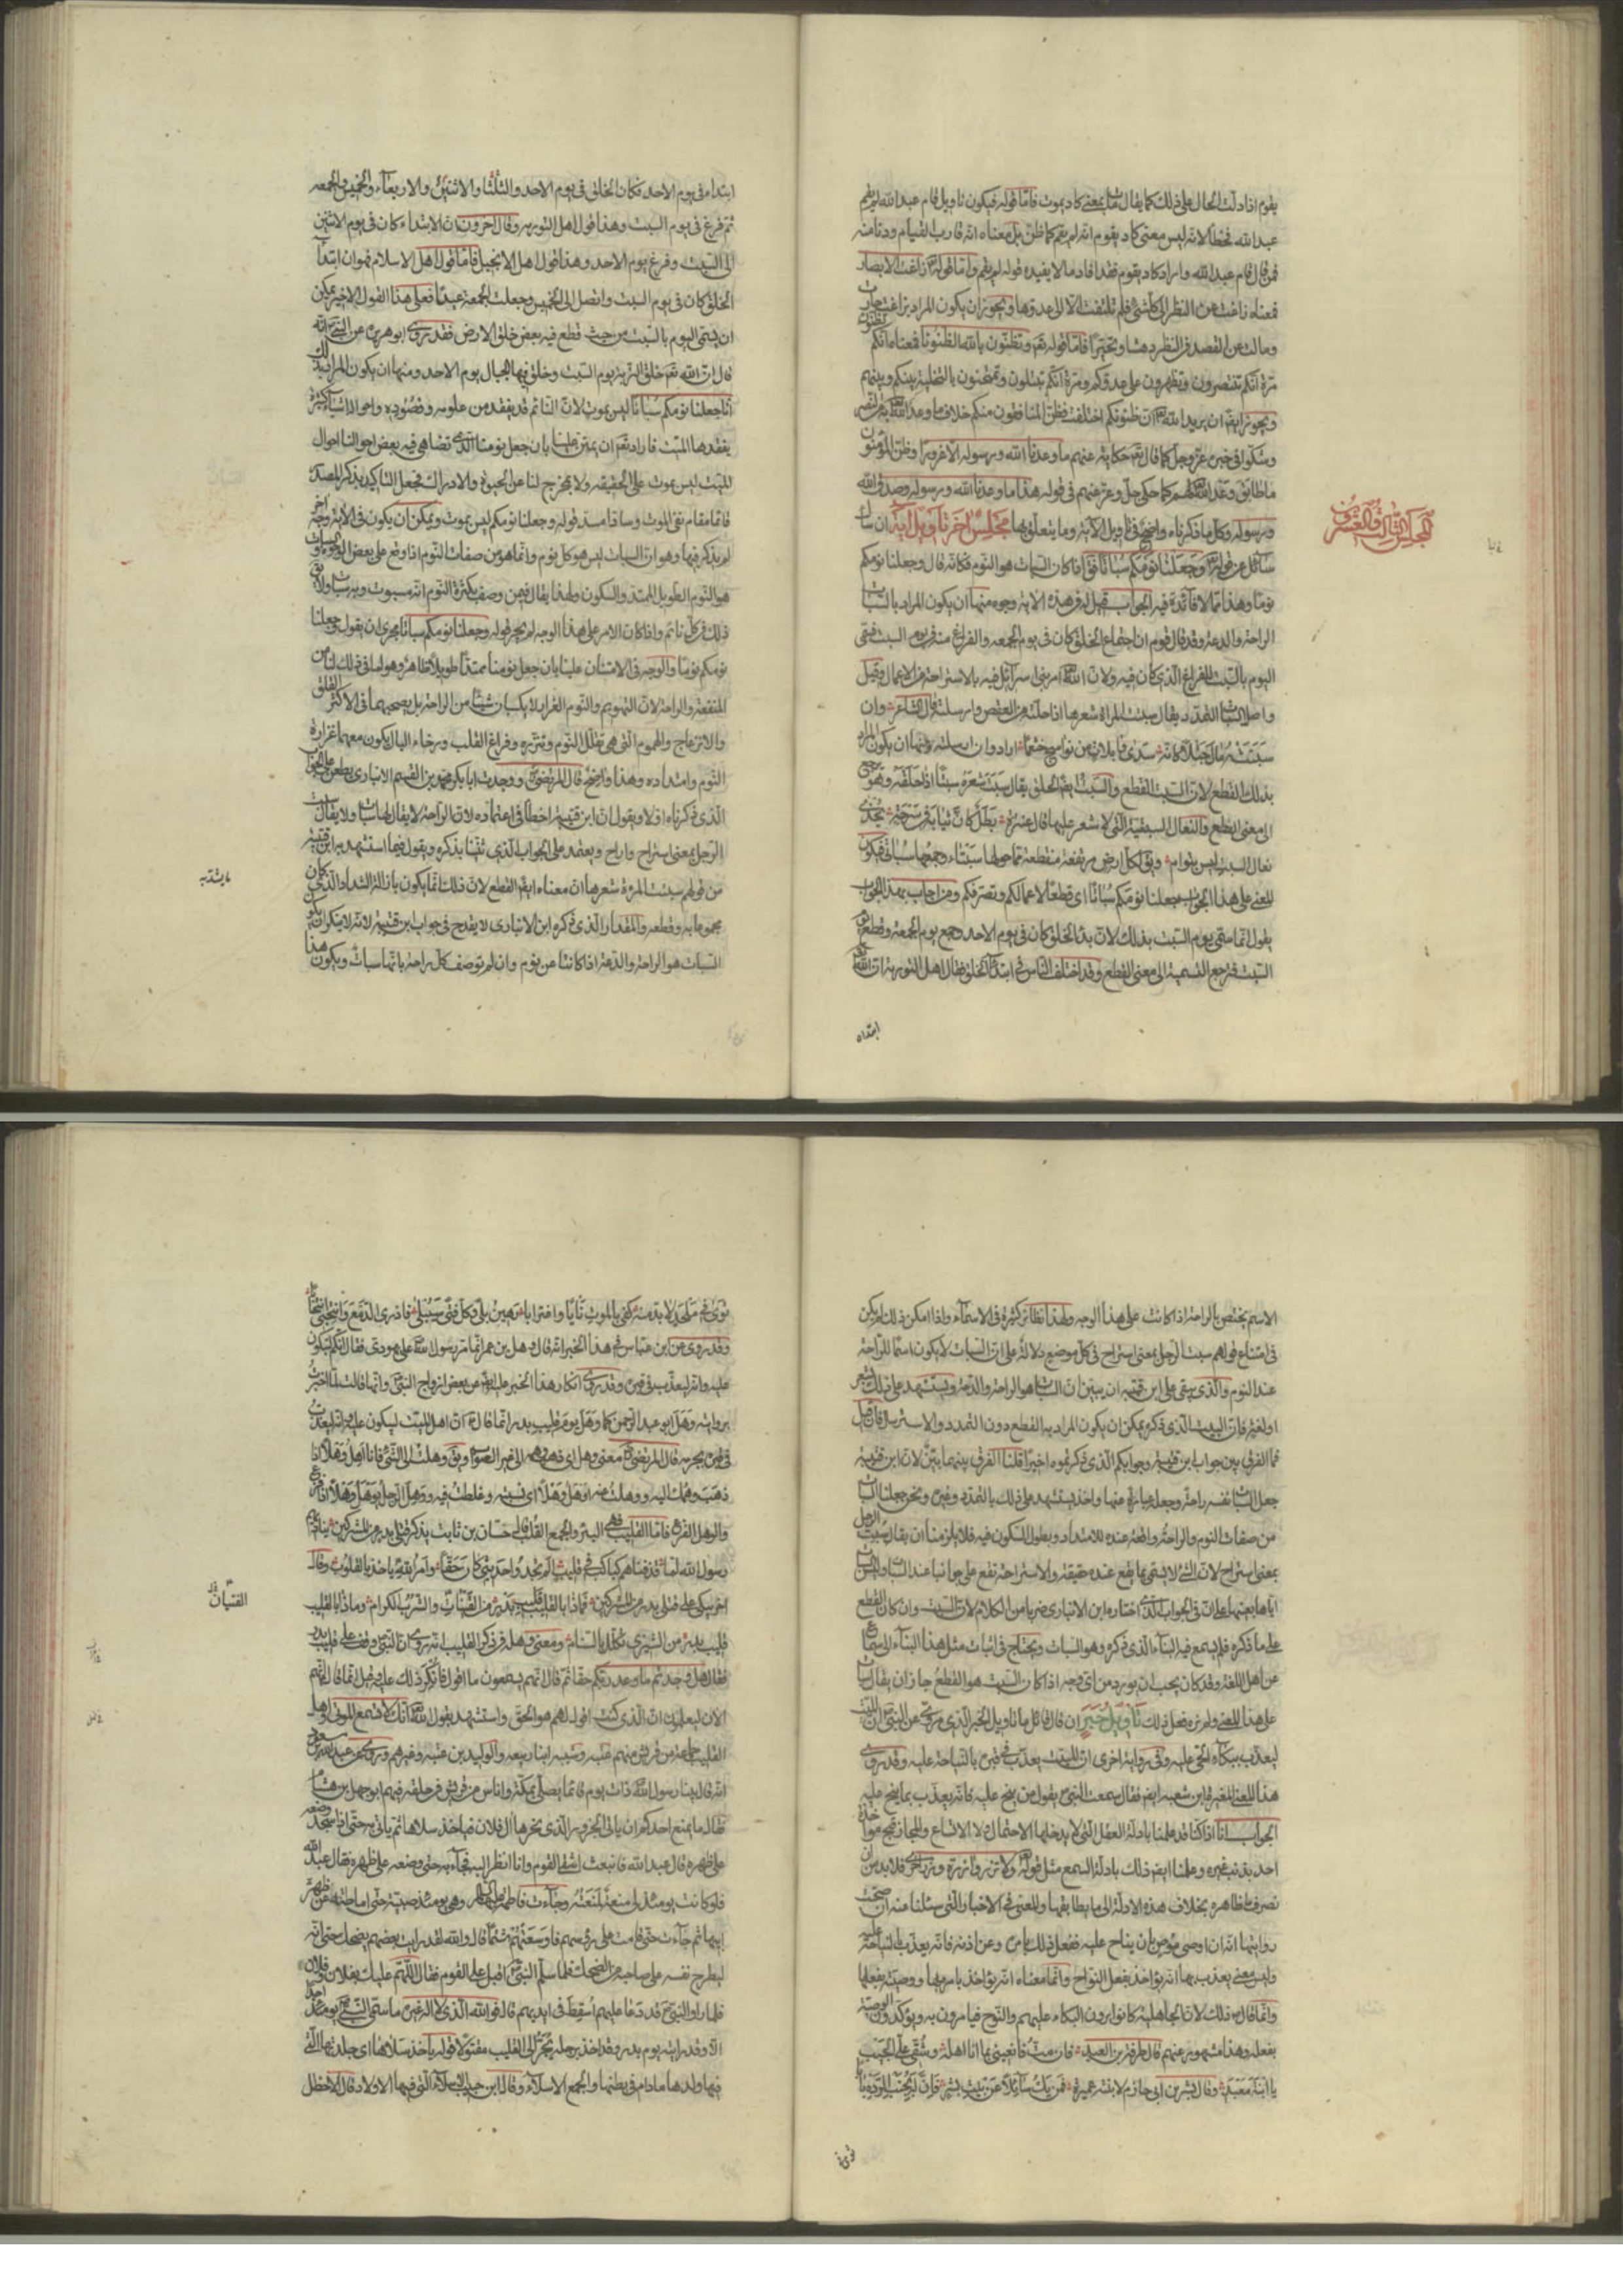 يقوم اذا دلت الحال على ذلك كما يقال مات بمعنى كاد يموت فامّا قوله فيكون تاويل قام عبد الله لم يقم
عبد الله فخطأ لانه ليس معنى كاد يقوم انه لم يقم كما ظن بل معناه انه قارب القيام ودنا منه
فمن قال قام عبد الله واراد كاد يقوم فقد افاد ما لا يفيده قوله لم يقم وامّا قوله تع زاغت الابصار
فمعناه زاغت عن النظر الى كل شئ فلم تلتفت الا الى عدوها ويجوز ان يكون المراد بزاغت جارت
ومالت عن القصد فى النظر دهشا وتحيّرا فامّا قوله تع وتظنّون بالله الظنونا فمعناه انكم تظنون
مرّة انكم تنصرون وتظهرون على عدوكم ومرّة انكم تبتلون وتمتحنون بالتخلية بينكم وبينهم
ويجوز ايضا ان يريد الله تع ان ظنونكم اختلفت فظن المنافقون منكم خلاف ما وعد الله به من النصر
وشكوا فى خبره عزّ وجل كما قال تع حكاية عنهم ما وعدنا الله ورسوله الا غرورا وظن المؤمنون
ما طابق وعد الله لهم كما حكى جلّ وعز عنهم فى قوله هذا ما وعدنا الله ورسوله وصدق الله
ورسوله وكل ما ذكرناه واضح فى تاويل الآية وما يتعلق بها مجلس آخر تاويل آية ان سال
المجلس الثالث والعشرون
سائل عن قوله تع وجعلنا نومكم سباتا فقال اذا كان السبات هو النوم فكانه قال وجعلنا نومكم
نوما وهذا مما لا فائدة فيه الجواب قيل له فى هذه الآية وجوه منها ان يكون المراد بالسبات
الراحة والدعة وقد قال قوم ان اجتماع الخلق كان فى يوم الجمعه والفراغ منه فى يوم السبت فسمّى
اليوم بالسبت للفراغ الذى كان فيه ولان الله تع امر بنى اسرائيل فيه بالاستراحة من الاعمال وقيل
واصل السبات التمدّد يقال سبتت المراة شعرها اذا حلته من العقص وارسلته قال الشاعر وان
سبّتته مال جثلا كانه سدى واثلات من نواسج خثعما اراد وان ارسلته ومنها ان يكون المراد
بذلك القطع لان السبت القطع والسبت ايضا الحلق يقال سبت شعره سبتا اذا حلقه وهو يرجع
الى معنى القطع والنعال السبتية التى لا شعر عليها قال عنترة بطل كان ثيابه فى سرحة يحذى
نعال السبت ليس بتوام ويقال لكل ارض مرتفعة منقطعة مما حولها سبتاء وجمعها سباتى فيكون
المعنى على هذا الجواب جعلنا نومكم سباتا اى قطعا لاعمالكم وتصرفكم ومن اجاب بهذا الجواب
يقول انما سمّى يوم السبت بذلك لان بدء الخلق كان فى يوم الاحد وجمع يوم الجمعة وقطع يوم
السبت فترجع التسمية الى معنى القطع وقد اختلف الناس فى ابتداء الخلق فقال اهل التورية ان الله تع
ابتداه
ابتداء فى يوم الاحد فكان الخلق فى يوم الاحد والثلثا والاثنين والاربعاء والخميس والجمعه
ثم فرغ فى يوم السبت وهذا قول اهل التورية وقال آخرون ان الابتداء كان فى يوم الاثنين
الى السبت وفرغ يوم الاحد وهذا قول اهل الانجيل فامّا قول اهل الاسلام فهو ان ابتداء
الخلق كان فى يوم السبت واتصل الى الخميس وجعلت الجمعة عيدا فعلى هذا القول الاخير يمكن
ان يسمى اليوم بالسبت من حيث قطع فيه بعض خلق الارض فقد روى ابو هريرة عن النبى ص انه
قال ان الله تع خلق التربة يوم السبت وخلق فيها الجبال يوم الاحد ومنها ان يكون المراد بذلك
انا جعلنا نومكم سباتا ليس بموت لان النائم قد يفقد من علومه وقصوده واحواله اشياء كثيرة
يفقدها الميت فاراد تع ان يمتن علينا بان جعل نومنا الذى تضاهى فيه بعض احوالنا احوال
الميت ليس بموت على الحقيقه ولا بمخرج لنا عن الحيوة والادراك فجعل التاكيد بذكر المصدر
قائما مقام نفى الموت وسادا مسد قوله وجعلنا نومكم ليس بموت ويمكن ان يكون فى الآية وجه آخر
لم يذكر فيها وهو ان السبات ليس هو كل نوم وانما هو من صفات النوم اذا وقع على بعض الوجوه والسبات
هو النوم الطويل الممتد والسكون ولهذا يقال فيمن وصف بكثرة النوم انه مسبوت وبه سبات ولا يق
ذلك فى كل نائم واذا كان الامر على هذا الوجه لم يجر قوله وجعلنا نومكم سباتا مجرى ان يقول وجعلنا
نومكم نوما والوجه فى الامتنان علينا بان جعل نومنا ممتدا طويلا ظاهر وهو لما فى ذلك لنا من
المنفعة والراحة لان التهويم والنوم الغرار لا يكسبان شيئا من الراحة بل يصحبهما فى الاكثر القلق
والانزعاج والهموم التى هى تقلل النوم وتنزره وفراغ القلب ورخاء البال يكون معهما غزارة
النوم وامتداده وهذا واضح قال المرتضى رض ووجدت ابا بكر محمد بن القسم الانبارى يطعن على الجواب
الذى ذكرناه اولا ويقول ان ابن قتيبة اخطأ فى اعتماده لان الراحة لا يقال لها سبات ولا يقال سبت
الرجل بمعنى استراح واراح ويعتمد على الجواب الذى ثنّينا بذكره ويقول فيما استشهد به ابن قتيبة
من قولهم سبتت المرءة شعرها ان معناه ايضا القطع لان ذلك انما يكون بازالة الشداد الذى كان
مجموعا به وقطعه والمقدار الذى ذكره ابن الانبارى لا يقدح فى جواب ابن قتيبة لانه لا ينكر ان يكون
السبات هو الراحة والدعة اذا كانتا عن نوم وان لم توصف كل راحة بانها سبات ويكون هذا
الاسم يختص بالراحة اذا كانت على هذا الوجه ولهذا نظائر كثيرة فى الاسماء واذا امكن ذلك لم يكن
فى امتناع قولهم سبت الرجل بمعنى استراح فى كل موضع دلالة على ان السبات لا يكون اسما للراحة
عند النوم والذى يبقى على ابن قتيبه ان يبين ان السبات هو الراحة والدعة ويستشهد على ذلك بشعر
او لغة فان البيت الذى ذكره يمكن ان يكون المراد به القطع دون التمدد والاسترسال فان قيل
فما الفرق بين جواب ابن قتيبة وجوابكم الذى ذكرتموه اخيرا قلنا الفرق بينهما بيّن لان ابن قتيبة
جعل السبات نفسه راحة وجعله عبارة عنها واخذ يستشهد على ذلك بالتمدد وغيره ونحن جعلنا السبات
من صفات النوم والراحة واقعة عنده للامتداد وطول السكون فيه فلا يلزمنا ان يقال سبت الرجل
بمعنى استراح لان الشئ لا يسمّى بما يقع عنده حقيقة والاستراحة تقع على جوابنا عند السبات وليس السبات
اياها بعينها على ان فى الجواب الذى اختاره ابن الانبارى ضربا من الكلام لان السبت وان كان القطع
على ما ذكره فلم يسمع فيه البناء الذى ذكره وهو السبات ويحتاج فى اثبات مثل هذا البناء الى سماع
عن اهل اللغة وقد كان يجب ان يورد من اى وجه اذا كان السبت هو القطع جاز ان يقال سبات
على هذا المعنى ولم نره فعل ذلك تاويل خبر ان قال قائل ما تاويل الخبر الذى روى عن النبى ص ان الميت
ليعذب ببكاء الحى عليه وفى رواية اخرى ان الميت يعذب فى قبره بالنياحة عليه وقد روى
هذا المعنى المغيرة بن شعبه ايضا فقال سمعت النبى ص يقول من ينح عليه فانه يعذب بما ينح عليه
الجواب انا اذا كنا قد علمنا بادلة العقل التى لا يدخلها الاحتمال ولا الاتساع والمجاز قبح مؤاخذة
احد بذنب غيره وعلمنا ايضا ذلك بادلة السمع مثل قوله تع ولا تزر وازرة وزر اخرى فلا بد من ان
نصرف ما ظاهره بخلاف هذه الادلة الى ما يطابقها والمعنى فى الاخبار التى سئلنا عنها ان صحت
روايتها انه ان اوصى موص بان يناح عليه ففعل ذلك بامره وعن اذنه فانه يعذب بالنياحة عليه
وليس معنى يعذب بها انه يؤاخذ بفعل النواح وانما معناه انه يؤاخذ بامره بها ووصيته بفعلها
وانما قال ص ذلك لان الجاهلية كانوا يرون البكاء عليهم والنوح فيامرون به ويؤكدون الوصية
بفعله وهذا مشهور عنهم قال طرفة بن العبد فان مت فانعينى بما انا اهله وشقى على الجيب
يا ابنة معبد وقال بشر بن ابى حازم لابنته عميرة فمن يك سائلا عن بيت بشر فان له بجنب الرده بابا
ثوى
ثوى فى ملحد لا بد منه كفى بالموت نايا واغترابا رهين بلى وكل فتى سيبلى فاذرى الدمع وانتحبى انتحابا
وقد روى عن ابن عباس فى هذا الخبر انه قال وهل ابن عمر انما مرّ رسول الله ص على يهودى فقال انكم لتبكون
عليه وانه ليعذب فى قبره وقد روى انكار هذا الخبر عن بعض ازواج النبى ص وانها قالت لما اخبرت
بروايته وهل ابو عبد الرحمن كما وهل يوم قليب بدر انما قال ص ان اهل الميت ليبكون عليه وانه ليعذب
فى قبره بجرمه قال المرتضى رض معنى وهل اى ذهب وهمه الى غير الصواب ويق وهلت الى الشئ فانا اهل وهلا اذا
ذهب وهمك اليه ووهلت عنه اوهل وهلا اى نسيته وغلطت فيه ووهل الرجل يوهل وهلا اذا فزع
والوهل الفزع فامّا القليب فهى البئر والجمع القلب قال حسان بن ثابت يذكر قتلى بدر من المشركين يناديهم
رسول الله لما قذفناهم كباكب فى قليب الم تجدوا حديثى كان حقا وامر الله ياخذ بالقلوب وقال
آخر يبكى على قتلى بدر من المشركين فماذا بالقليب قليب بدر من القينات والشرب الكرام وماذا بالقليب
الفتيان
قليب بدر من الشيزى تكلل بالسنام ومعنى وهله فى ذكر القليب انه روى ان النبى وقف على قليب بدر
فقال هل وجدتم ما وعد ربكم حقا ثم قال انهم يسمعون ما اقول فانكر ذلك عليه وقيل انما قال انهم
الآن ليعلمون ان الذى كنت اقول لهم هو الحق واستشهد بقول الله تع انك لا تسمع الموتى واهل
القليب جماعة من قريش منهم عتبة وشيبه ابنا ربيعه والوليد بن عتبه وغيرهم وروى عن عبد الله بن مسعود
انه قال بينا رسول الله ص ذات يوم قائما يصلى بمكة واناس من قريش فى حلقة فيهم ابو جهل بن هشام
فقال ما يمنع احدكم ان ياتى الجزور الذى نحرها آل فلان فياخذ سلاها ثم ياتى به حتى اذا سجد وضعه
على ظهره قال عبد الله فانبعث اشقى القوم وانا انظر اليه فجاء به حتى وضعه على ظهره فقال عبد الله
فلو كانت يومئذ لى منعة لمنعته وجاءت فاطمة عليها السلام وهى يومئذ صبية حتى اماطته عن ظهر
ابيها ثم جاءت حتى قامت على رؤسهم فاوسعتهم شتما قال والله لقد رايت بعضهم يضحك حتى انه
ليطرح نفسه على صاحبه من الضحك فلما سلّم النبى ص اقبل على القوم فقال اللهم عليك بفلان وفلان
فلما راوا النبى ص قد دعا عليهم اسقط فى ايديهم قال فوالله الذى لا اله غيره ما سمّى النبى ص يومئذ احدا
الا وقد رايته يوم بدر وقد اخذ برجله يجر الى القليب مقتولا قوله ياخذ سلاها اى جلدتها التى
فيها ولدها ما دام فى بطنها والجمع الاسلاء وقال ابن حبيب الاسلاء التى فيها الاولاد قال الاخطل